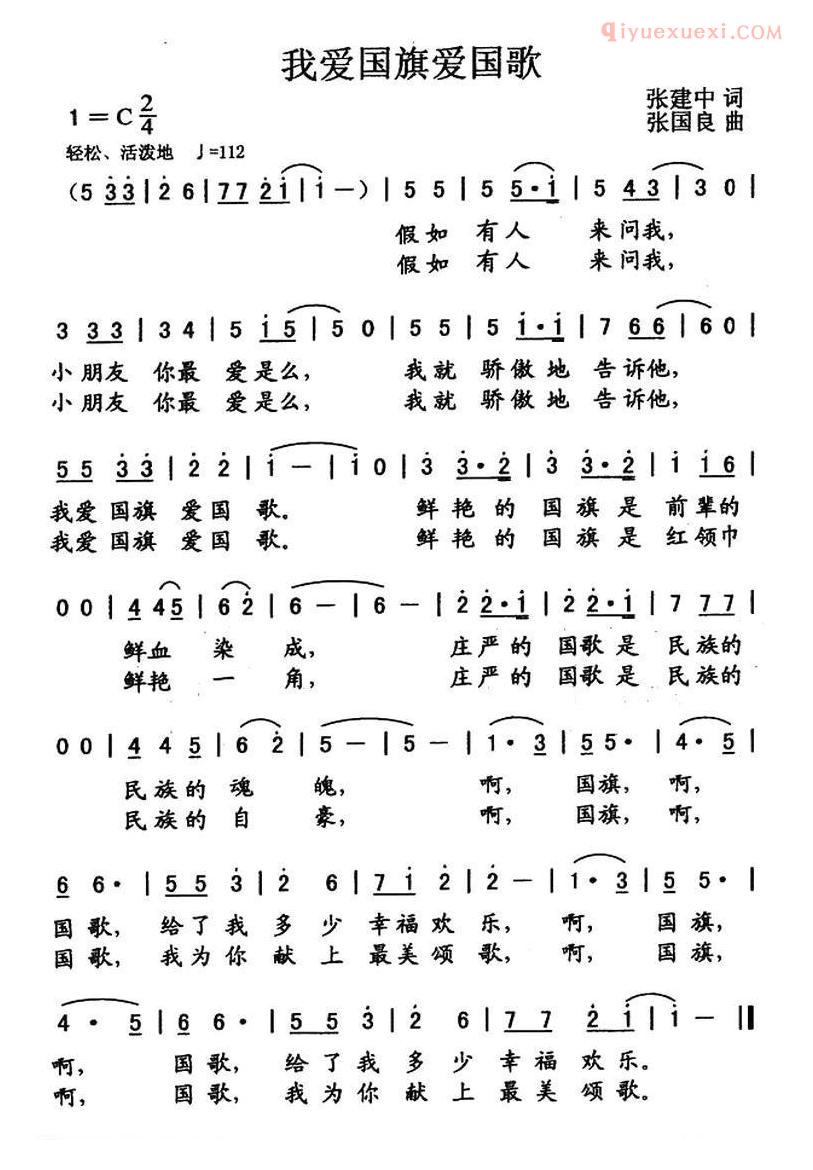 qiyuexuexi.com
我爱国旗爱国歌
张建中 词
1=C 2/4
张国良 曲
轻松、活泼地 ♩=112
(5 33|26|77 21|1—)|55|55·1|5 43|30|
假如 有人 来问我,
假如 有人 来问我,
3 33|34|5 15|50|55|51·1|7 66|60|
小朋友 你最 爱是么, 我就 骄傲地 告诉他,
小朋友 你最 爱是么, 我就 骄傲地 告诉他,
55 33|22|1—|10|33·2|33·2|1 16|
我爱国旗 爱国 歌。 鲜艳的 国旗是 前辈的
我爱国旗 爱国 歌。 鲜艳的 国旗是 红领巾
00|4 45|62|6—|6—|22·1|22·1|7 77|
鲜血 染 成, 庄严的 国歌是 民族的
鲜艳 一 角, 庄严的 国歌是 民族的
00|445|62|5—|5—|1·3|55·|4·5|
民族的 魂 魄, 啊, 国旗, 啊,
民族的 自 豪, 啊, 国旗, 啊,
66·|55 3|26|71 2|2—|1·3|55·|
国歌, 给了我 多少 幸福欢 乐, 啊, 国旗,
国歌, 我为你 献上 最美颂 歌, 啊, 国旗,
4·5|66·|55 3|26|77 21|1—‖
啊, 国歌, 给了我 多少 幸福 欢乐。
啊, 国歌, 我为你 献上 最美 颂歌。